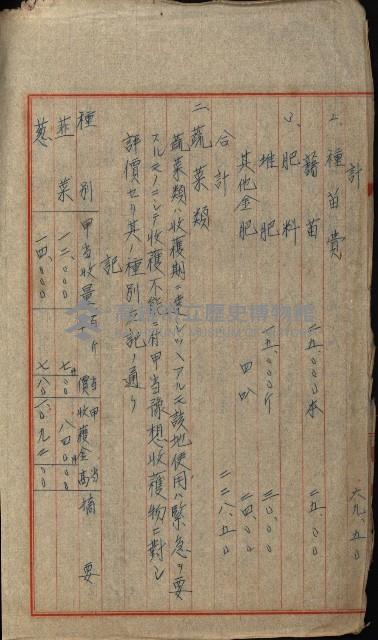 計 六九、五〇
2、種苗費
藷苗 二五、〇〇〇本 二五、〇〇
3、肥料
堆肥 一五、〇〇〇斤 三〇、〇〇
其他金肥 四叺 二四、〇〇
合計 二二八、五〇
二、蔬菜類
蔬菜類ハ收穫期ニ達シツヽアルモ該地使用ハ緊急ヲ要
スルモノニシテ收穫不能ニ付甲当豫想收穫物ニ對シ
評價セリ其ノ種別左記ノ通リ
記
種別 甲当收量 百斤当價 甲当收穫金高 摘要
韮菜 一二、〇〇〇 七、〇〇 八四〇、〇〇
葱 一四、〇〇〇 七、八〇 一、〇九二、〇〇
高雄市立歷史博物館
KAOHSIUNG MUSEUM OF HISTORY